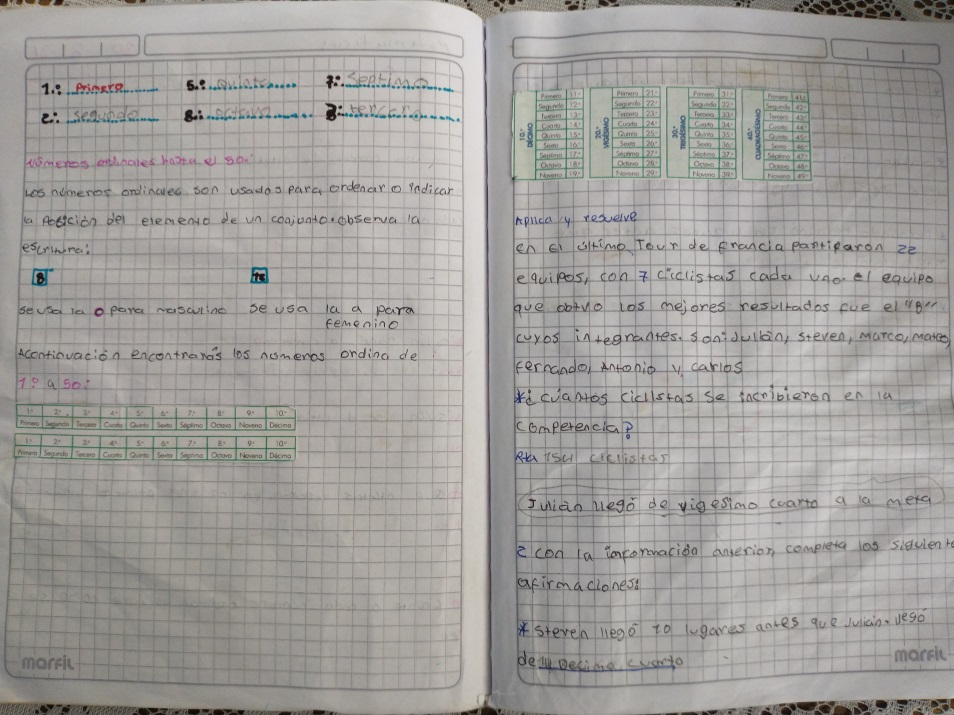 1.: Primero 5.: Quinto 7.: Septimo
2.: segundo 8.: octavo 3.: tercero
números ordinales hasta el 50.
Los números ordinales son usados para ordenar o indicar
la Posición del elemento de un conjunto. observa la
escritura:
8 18
se usa la o para masculino se usa la a para
femenino
Acontinuación encontrarás los números ordina de
1.° a 50:
1° 2° 3° 4° 5° 6° 7° 8° 9° 10°
Primero Segundo Tercero Cuarto Quinto Sexto Séptimo Octavo Noveno Décimo
1° 2° 3° 4° 5° 6° 7° 8° 9° 10°
Primero Segundo Tercero Cuarto Quinto Sexto Séptimo Octavo Noveno Décimo
marfil
10.° DÉCIMO
Primero 11°
Segundo 12°
Tercero 13°
Cuarto 14°
Quinto 15°
Sexto 16°
Séptimo 17°
Octavo 18°
Noveno 19°
20.° VIGÉSIMO
Primero 21°
Segundo 22°
Tercero 23°
Cuarto 24°
Quinto 25°
Sexto 26°
Séptimo 27°
Octavo 28°
Noveno 29°
30.° TRIGÉSIMO
Primero 31°
Segundo 32°
Tercero 33°
Cuarto 34°
Quinto 35°
Sexto 36°
Séptimo 37°
Octavo 38°
Noveno 39°
40.° CUADRAGÉSIMO
Primero 41°
Segundo 42°
Tercero 43°
Cuarto 44°
Quinto 45°
Sexto 46°
Séptimo 47°
Octavo 48°
Noveno 49°
Aplica y resuelve
en el último Tour de francia partiparon 22
equipos, con 7 ciclistas cada uno. el equipo
que obtvo los mejores resultados fue el "B"
cuyos integrantes. son: Julián, steven, marco, mateo,
fernando, Antonio y carlos
*¿ cuántos ciclistas se incribieron en la
competencia?
Rta 154 ciclistas
Julián llegó de vigesimo cuarto a la meta
2 con la información anterior, completa las siguiente
afirmaciones:
* steven llegó 10 lugares antes que Julián. llegó
de Decimo cuarto
marfil